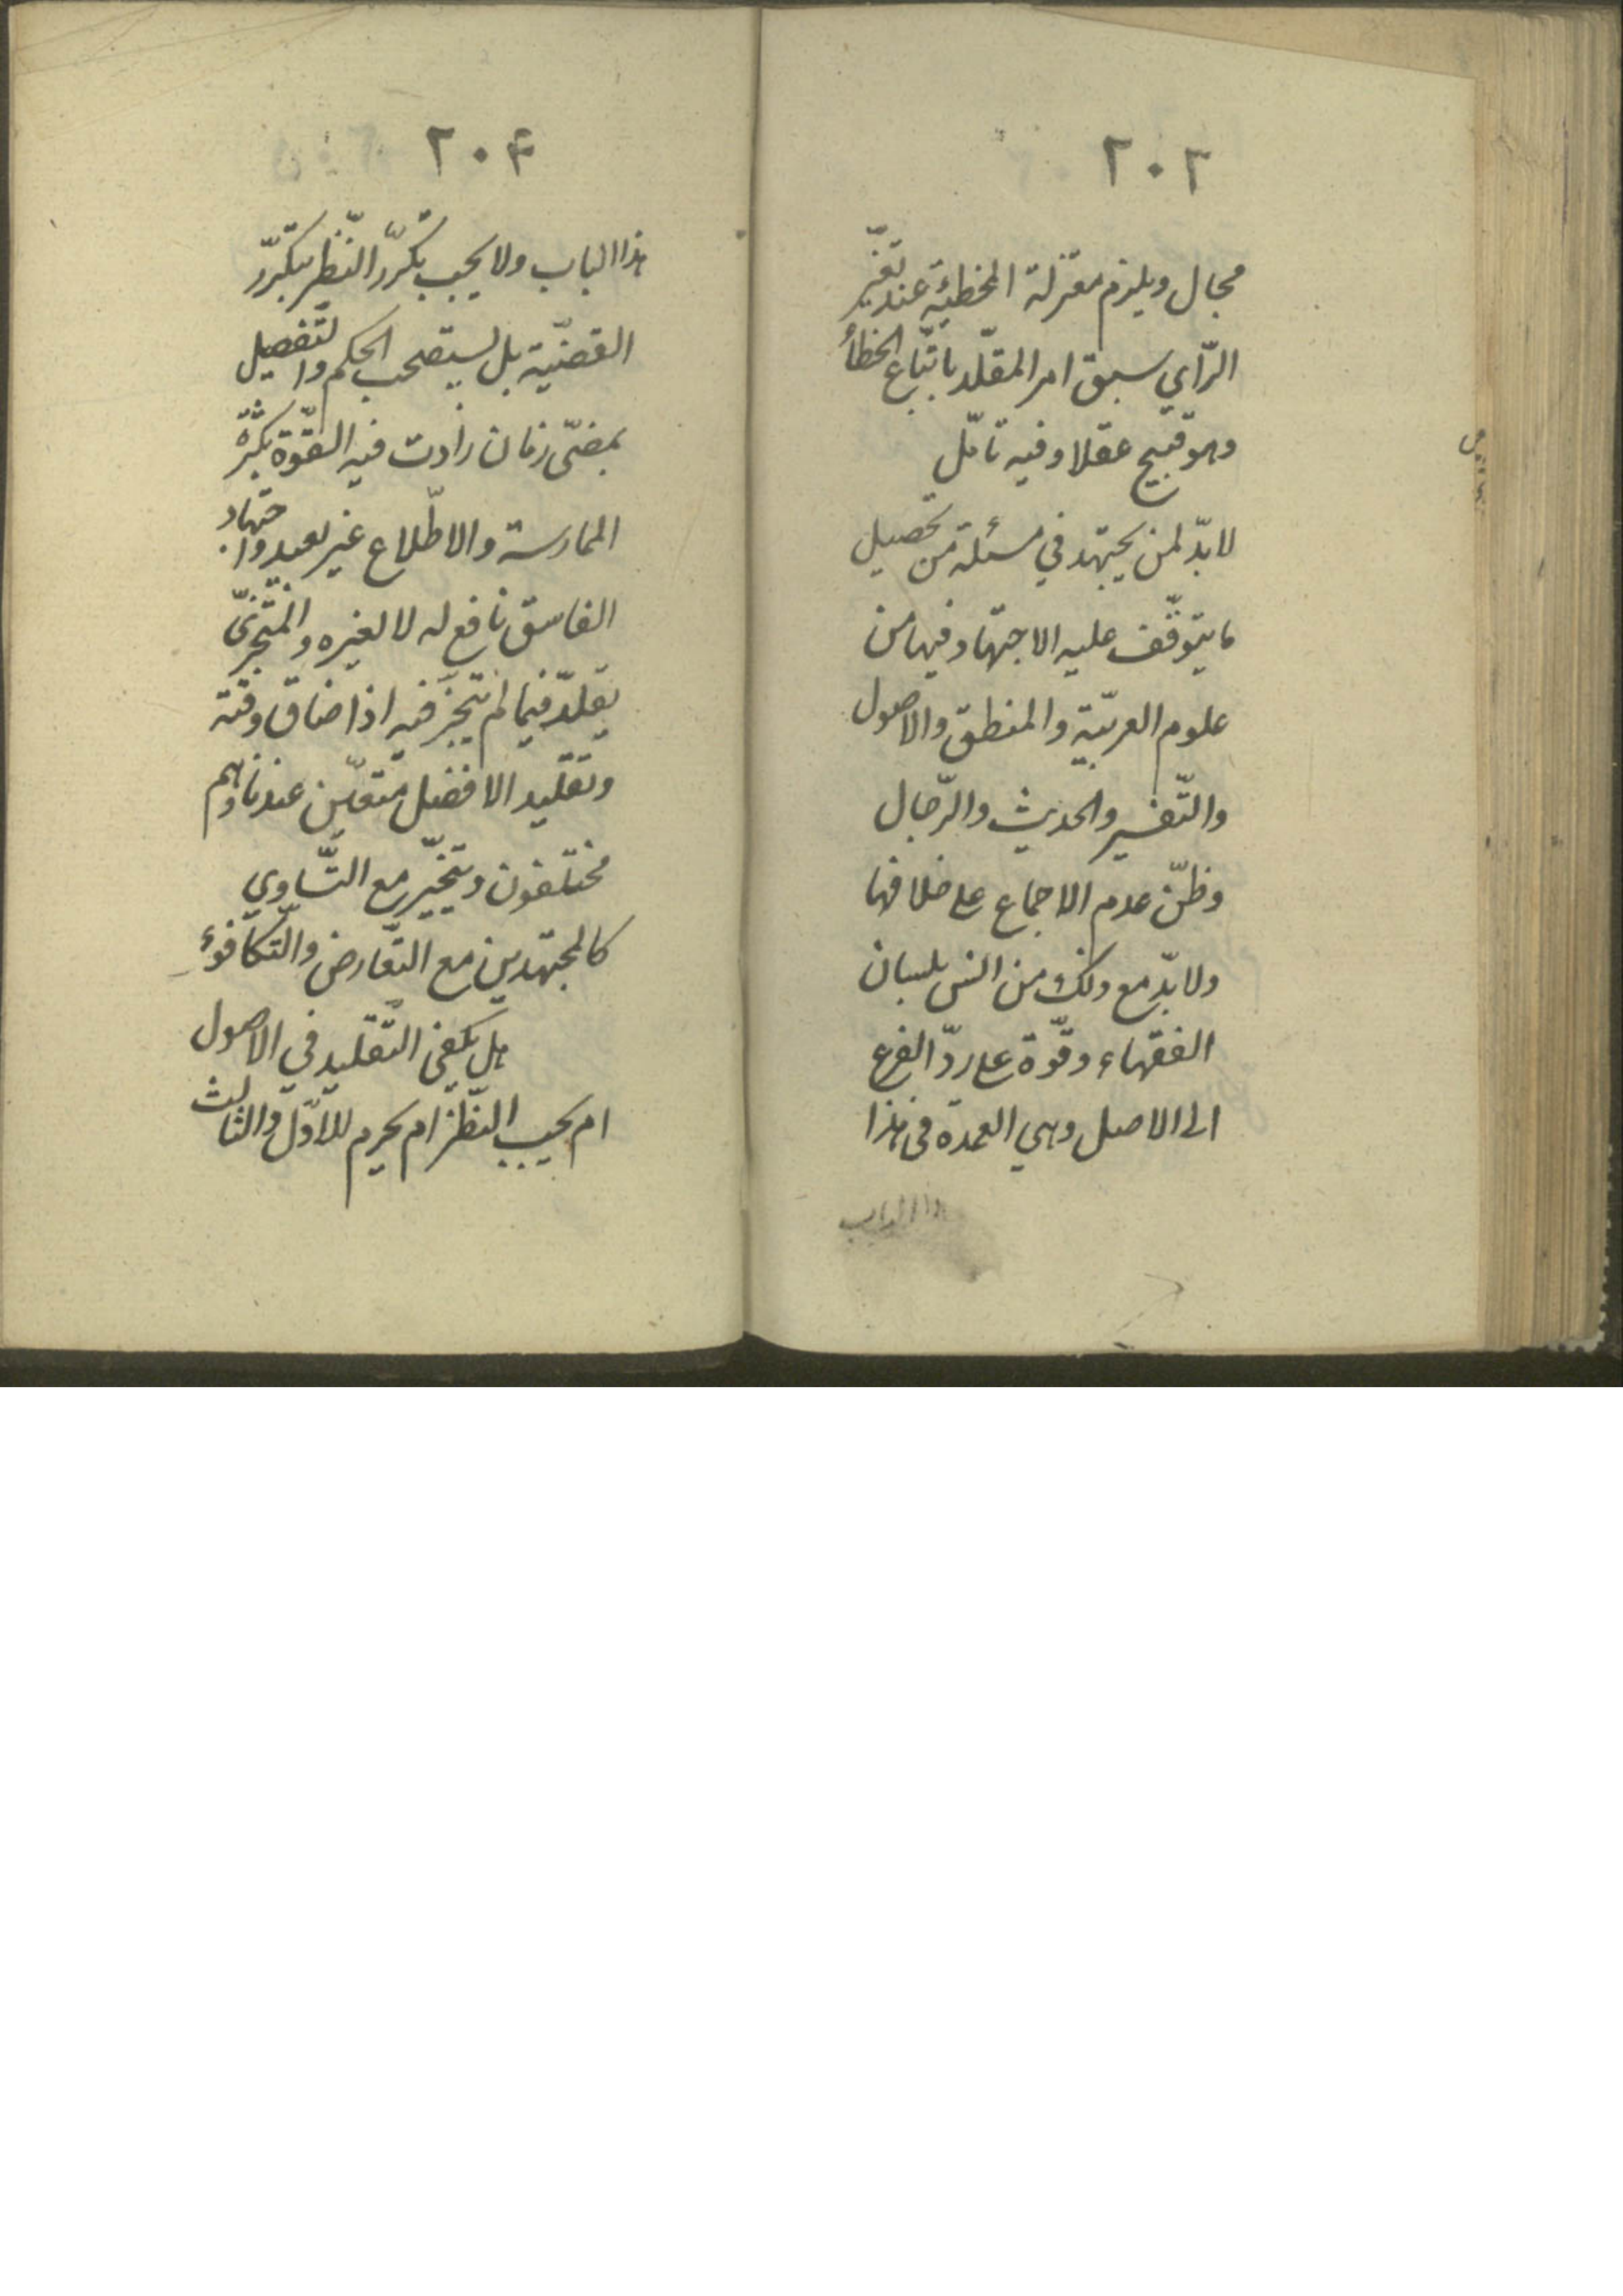 ٢٠٣
مجال ويلزم معتزلة المخطئة عند تغيّر
الرّأي سبق امر المقلّد باتّباع الخطأ
وهو قبيح عقلا وفيه تامّل
لابدّ لمن يجتهد في مسئلة من تحصيل
ما يتوقّف عليه الاجتهاد فيها من
علوم العربيّة والمنطق والاصول
والتّفسير والحديث والرّجال
وظنّ عدم الاجماع على خلافها
ولابدّ مع ذلك من انس بلسان
الفقهاء وقوّة على ردّ الفرع
الى الاصل وهي العمدة في هذا
هذا الباب
٢٠۴
هذا الباب ولا يجب تكرّر النّظر بتكرّر
القضيّة بل يستصحب الحكم والتّفصيل
بمضىّ زمان زادت فيه القوّة بكثرة
الممارسة والاطّلاع غير بعيد واجتهاد
الفاسق نافع له لا لغيره والمتجزّى
يقلّد فيما لم يتجزّ فيه اذا ضاق وقته
وتقليد الافضل متعيّن عندنا وهم
مختلفون ويتخيّر مع التّساوي
كالمجتهدين مع التّعارض والتّكافوء
هل يكفي التّقليد في الاصول
ام يجب النّظر ام يحرم للاوّل والثالث